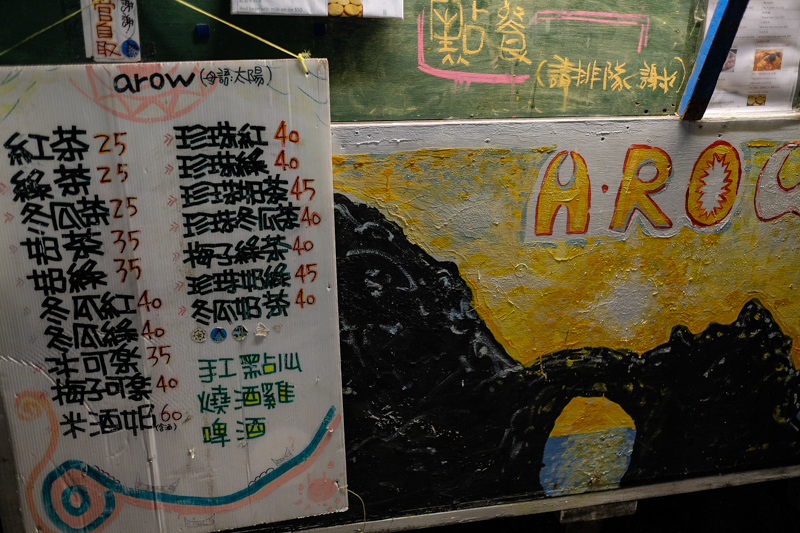 自取
謝謝
點餐
(請排隊 謝謝)
A·RO
arow (母語:太陽)
紅茶 25
綠茶 25
冬瓜茶 25
奶茶 35
奶綠 35
冬瓜紅 40
冬瓜綠 40
可樂 35
梅子可樂 40
米酒奶 60
珍珠紅 40
珍珠綠 40
珍珠奶茶 45
珍珠冬瓜茶 40
梅子綠茶 40
珍珠奶綠 45
冬瓜奶茶 40
手工黑占心
燒酒雞
啤酒